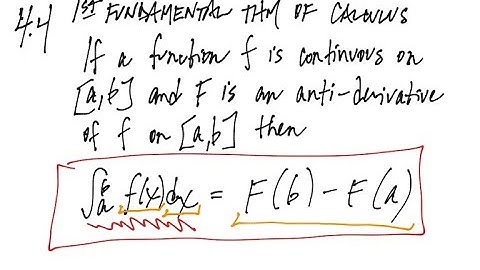 4.4 1st FUNDAMENTAL THM OF CALCULUS
If a function f is continuous on
[a,b] and F is an anti-derivative
of f on [a,b] then
∫ₐᵇ f(x)dx = F(b) - F(a)